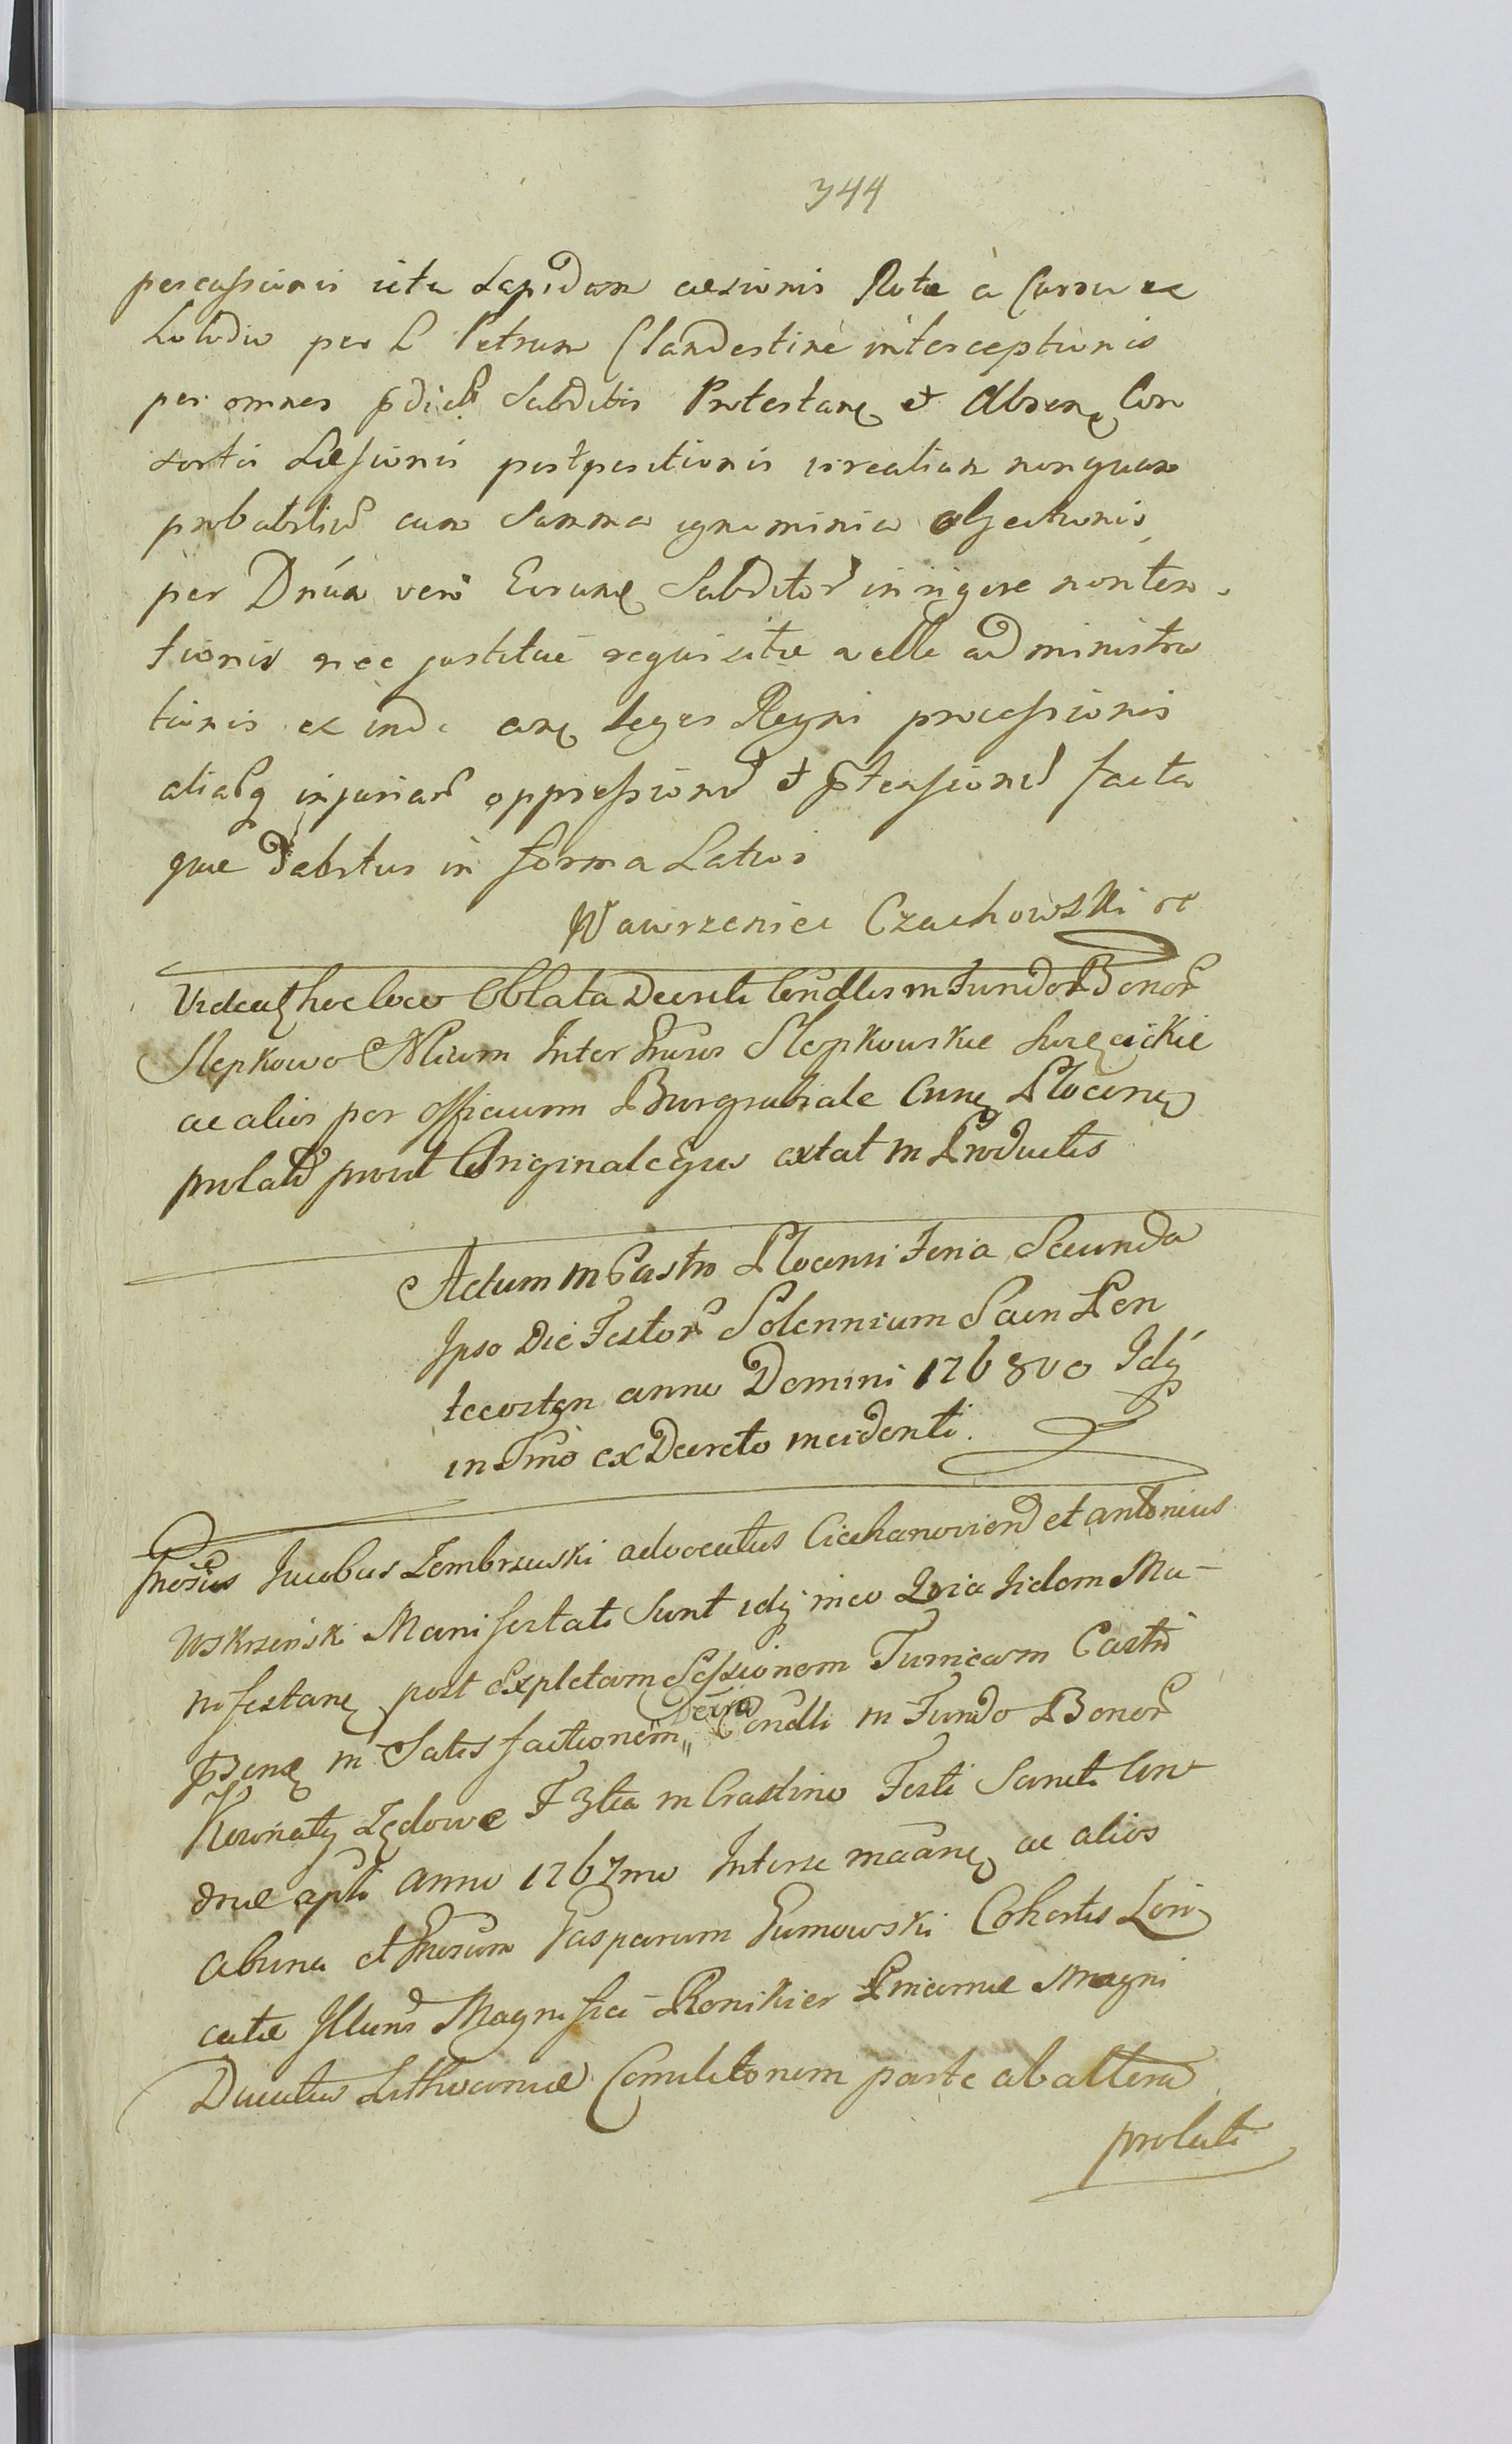 344
percussionis ictu Lapidum cæsionis Rotæ à Curru ac
per L Petrum Clandestinè interceptionis
per omnes pdict Subditis Protestanę et Absenę Con
sortis Læsionis postpositionis nonquam
probabiliu cum Summa ignominia objectionis
per Dnum vero Eorunę Subditor in rigore non ten
tionis nec justitiæ requisitæ velle administra
tionis ex inde eonę leges Regni processionis
aliarq injuriar oppressionu et ptensionu facta
quæ dabitur in forma Latiori
Wawrzeniec Czachowski
Videatę hoc loco Oblata Decreti Condlis in Fundo Bonor
Slepkowo Mium Inter Gnosos Slepkowskie
ac alios per officium Burgrabiale Cunę Plocenę
prolati prout Originale Ejus extat in Productis
Actum in Castro Plocensi Feria Secunda
Ipso Die Festor Solennium Sacri Pen
tecosten anno Domini 1768vo Idq
in Tmo ex Decreto incidenti.
Gnosus Jacobus Zembrzuski advocatus Ciechanoviens et antonius
Uskrzeński Manifestati Sunt idq in eo Quia Iidem Ma-
nifestanę post Expletam Sessionem Turricam Castri
psenę in Satisfactionem „ Decreti Condli in Fundo Bonor
Kownaty Lędowe F 3tia in Crastino Festi Sancti An
dreæ apli anno 1767mo Inter se maanę ac alios
ab una et Gnosum Gasparum Gumowski Cohortis Lori
catæ Illuris Magnifici Ronikier Pincernæ Magni
Ducatus Lithvaniæ Comilitonem parte ab altera
prolati